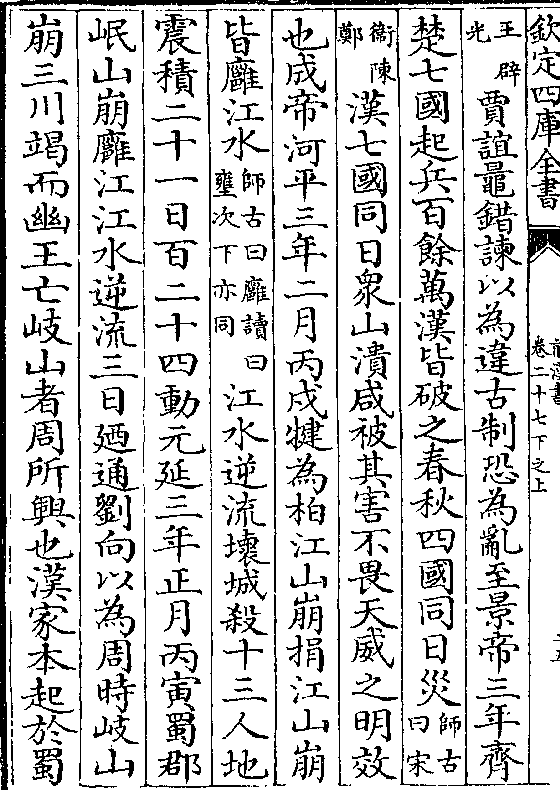 欽定四庫全書
前漢書
卷二十七下之上
王辟
光
賈誼鼂錯諫以為違古制恐為亂至景帝三年齊
楚七國起兵百餘萬漢皆破之春秋四國同日災
師古
曰宋
衞陳
鄭
也漢七國同日衆山潰咸被其害不畏天威之明效
也成帝河平三年二月丙戌犍為柏江山崩捐江山崩
皆廱江水
師古曰廱讀曰
壅次下亦同
江水逆流壞城殺十三人地
震積二十一日百二十四動元延三年正月丙寅蜀郡
岷山崩廱江江水逆流三日廼通劉向以為周時岐山
崩三川竭而幽王亡岐山者周所興也漢家本起於蜀